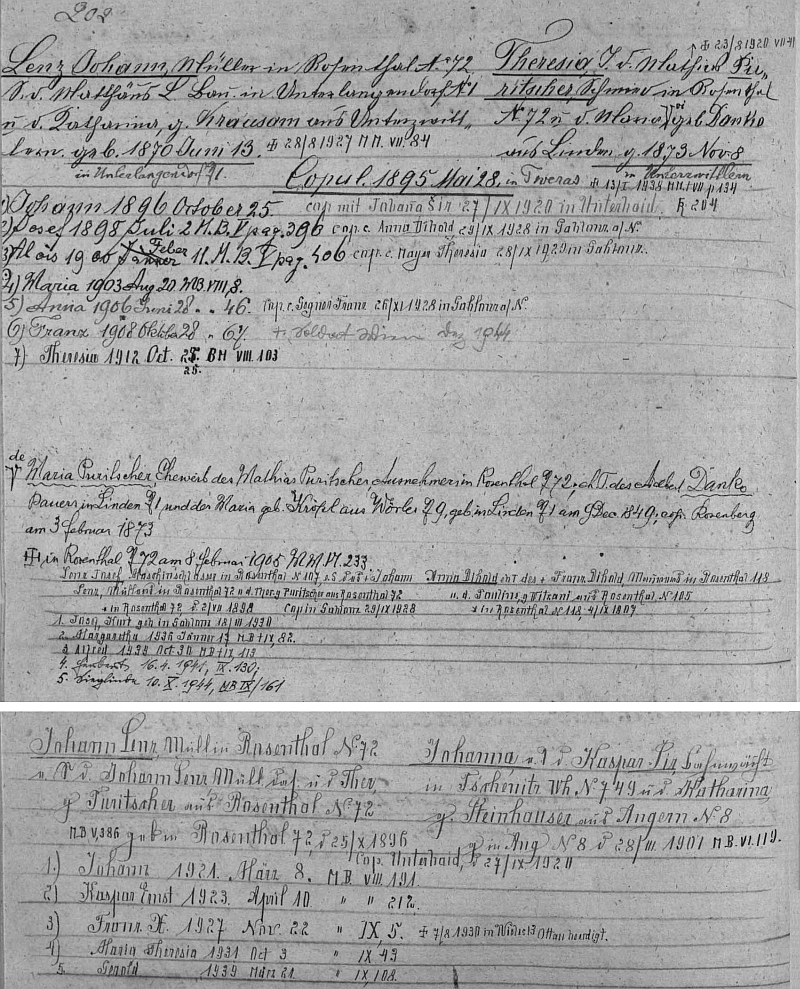 202
Lenz Johann, Müller in Rosenthal N. 72
S. d. Matthäus L. Bau. in Unterlangendorf N 1
u. d. Katharina, g. Krausam aus Unterzwitt-
lern. geb. 1870 Juni 13. ✠ 28/8 1927 M M. VII. 84
in Unterlangendorf 1.
✠ 23/8 1920 VII
Theresia, T. d. Mathias Pu-
ritscher, Schmied in Rosenthal
N. 72 u. d. Maria geb. Danko
aus Linden g. 1873 Nov. 8
in Unterzwittlern
Copul. 1895 Mai 28, in Tweras ✠ 13/I 1938 M M VII p. 134
1) Johann 1896 October 25. cop. mit Johana Sir 27/IX 1920 in Unterhaid. 204
2) Josef 1898 Juli 2 M. B. V pag. 396 cop. c. Anna Dihold 29/IX 1928 in Gablonz a/N.
3) Alois 1900 Jänner Feber 11. M. B. V pag. 406 cop. c. Mayer Theresia 28/IX 1929 in Gablonz.
4) Maria 1903 Aug. 20 MB. VIII, 8.
5) Anna 1906 Juni 28 " " 46. cop. c. Segner Franz 26/XI 1928 in Gablonz a/N.
6) Franz 1908 Oktober 28 " 67. + Soldat Wien Dez 1944
7) Theresia 1912 Oct. 25. BM VIII. 103
25.
de
Maria Puritscher Eheweib des Mathias Puritscher Ausnehmers in Rosenthal 72, eh. T. des Adalbert Danko
Bauers in Linden 1, und der Maria geb. Kröpl aus Wörles 9, geb. in Linden 1 am 9 Dec. 1849; copu. Rosenberg
am 3 Februar 1873
✠ in Rosenthal 72 am 8 Februar 1908 M. M. VI. 233.
Lenz Josef, Maschinschlosser in Rosenthal N 107, e. S. des + Johann
Lenz, Müllers in Rosenthal 72 u. d. Ther. g. Puritscher aus Rosenthal 72
* in Rosenthal 72 d. 2/VII 1898 Cop in Gablonz 29/IX 1928
Anna Dihold eh T des + Franz Dihold, Maurers in Rosenthal 118
u. d. Pauline, g. Witzani aus Rosenthal N. 105
* in Rosenthal N 118, 4/IX 1907
1. Josef, Kurt geb in Gablonz 18/III 1930
2. Margaretha 1936 Jänner 17 M. B. + IX, 82.
3. Alfred 1939 Oct. 30 MB + IX, 113
4. Herbert 16. 4. 1941, IX. 130;
5. Sieglinde 10. X. 1944, MB IX/161
Johann Lenz, Müll. in Rosenthal N 72
e. S. d. Johann Lenz Müll. das. u. d. Ther.
g. Puritscher aus Rosenthal N. 72
M.B V,386 geb in Rosenthal 72, d 25/X 1896
Johanna, e. T. d. Kaspar Sir, Bahnwächt
in Tschernitz Wh. N 749 u. d. Katharina
g. Steinhauser aus Angern N. 8
g in Ang N. 8 d 28/III. 1901 M. B. VI. 119.
Cop. Unterhaid, d 27/IX 1920
1.) Johann 1921. März 8. M. B. VIII. 191.
2) Kaspar Ernst 1923. April 10. " " 212.
3) Franz X. 1927 Nov. 22 " IX, 5. ✠ 7/8 1930 in beerdigt.
4) Maria Theresia 1931 Oct 3 " IX 43
5. Gerold 1939 März 21. " IX, 108.